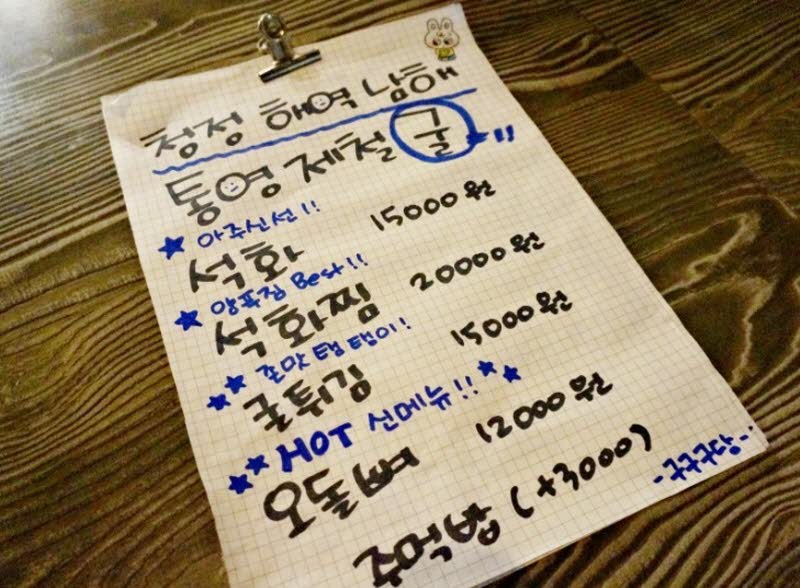 청정 해역 남해
통영 제철 굴 !!
★ 아주신선!!
석화 15000원
★ 양푼찜 Best!!
석화찜 20000원
★★ 존맛 탱탱이!
굴튀김 15000원
★★ HOT 신메뉴!! ★★
오돌뼈 12000원
주먹밥 (+3000)